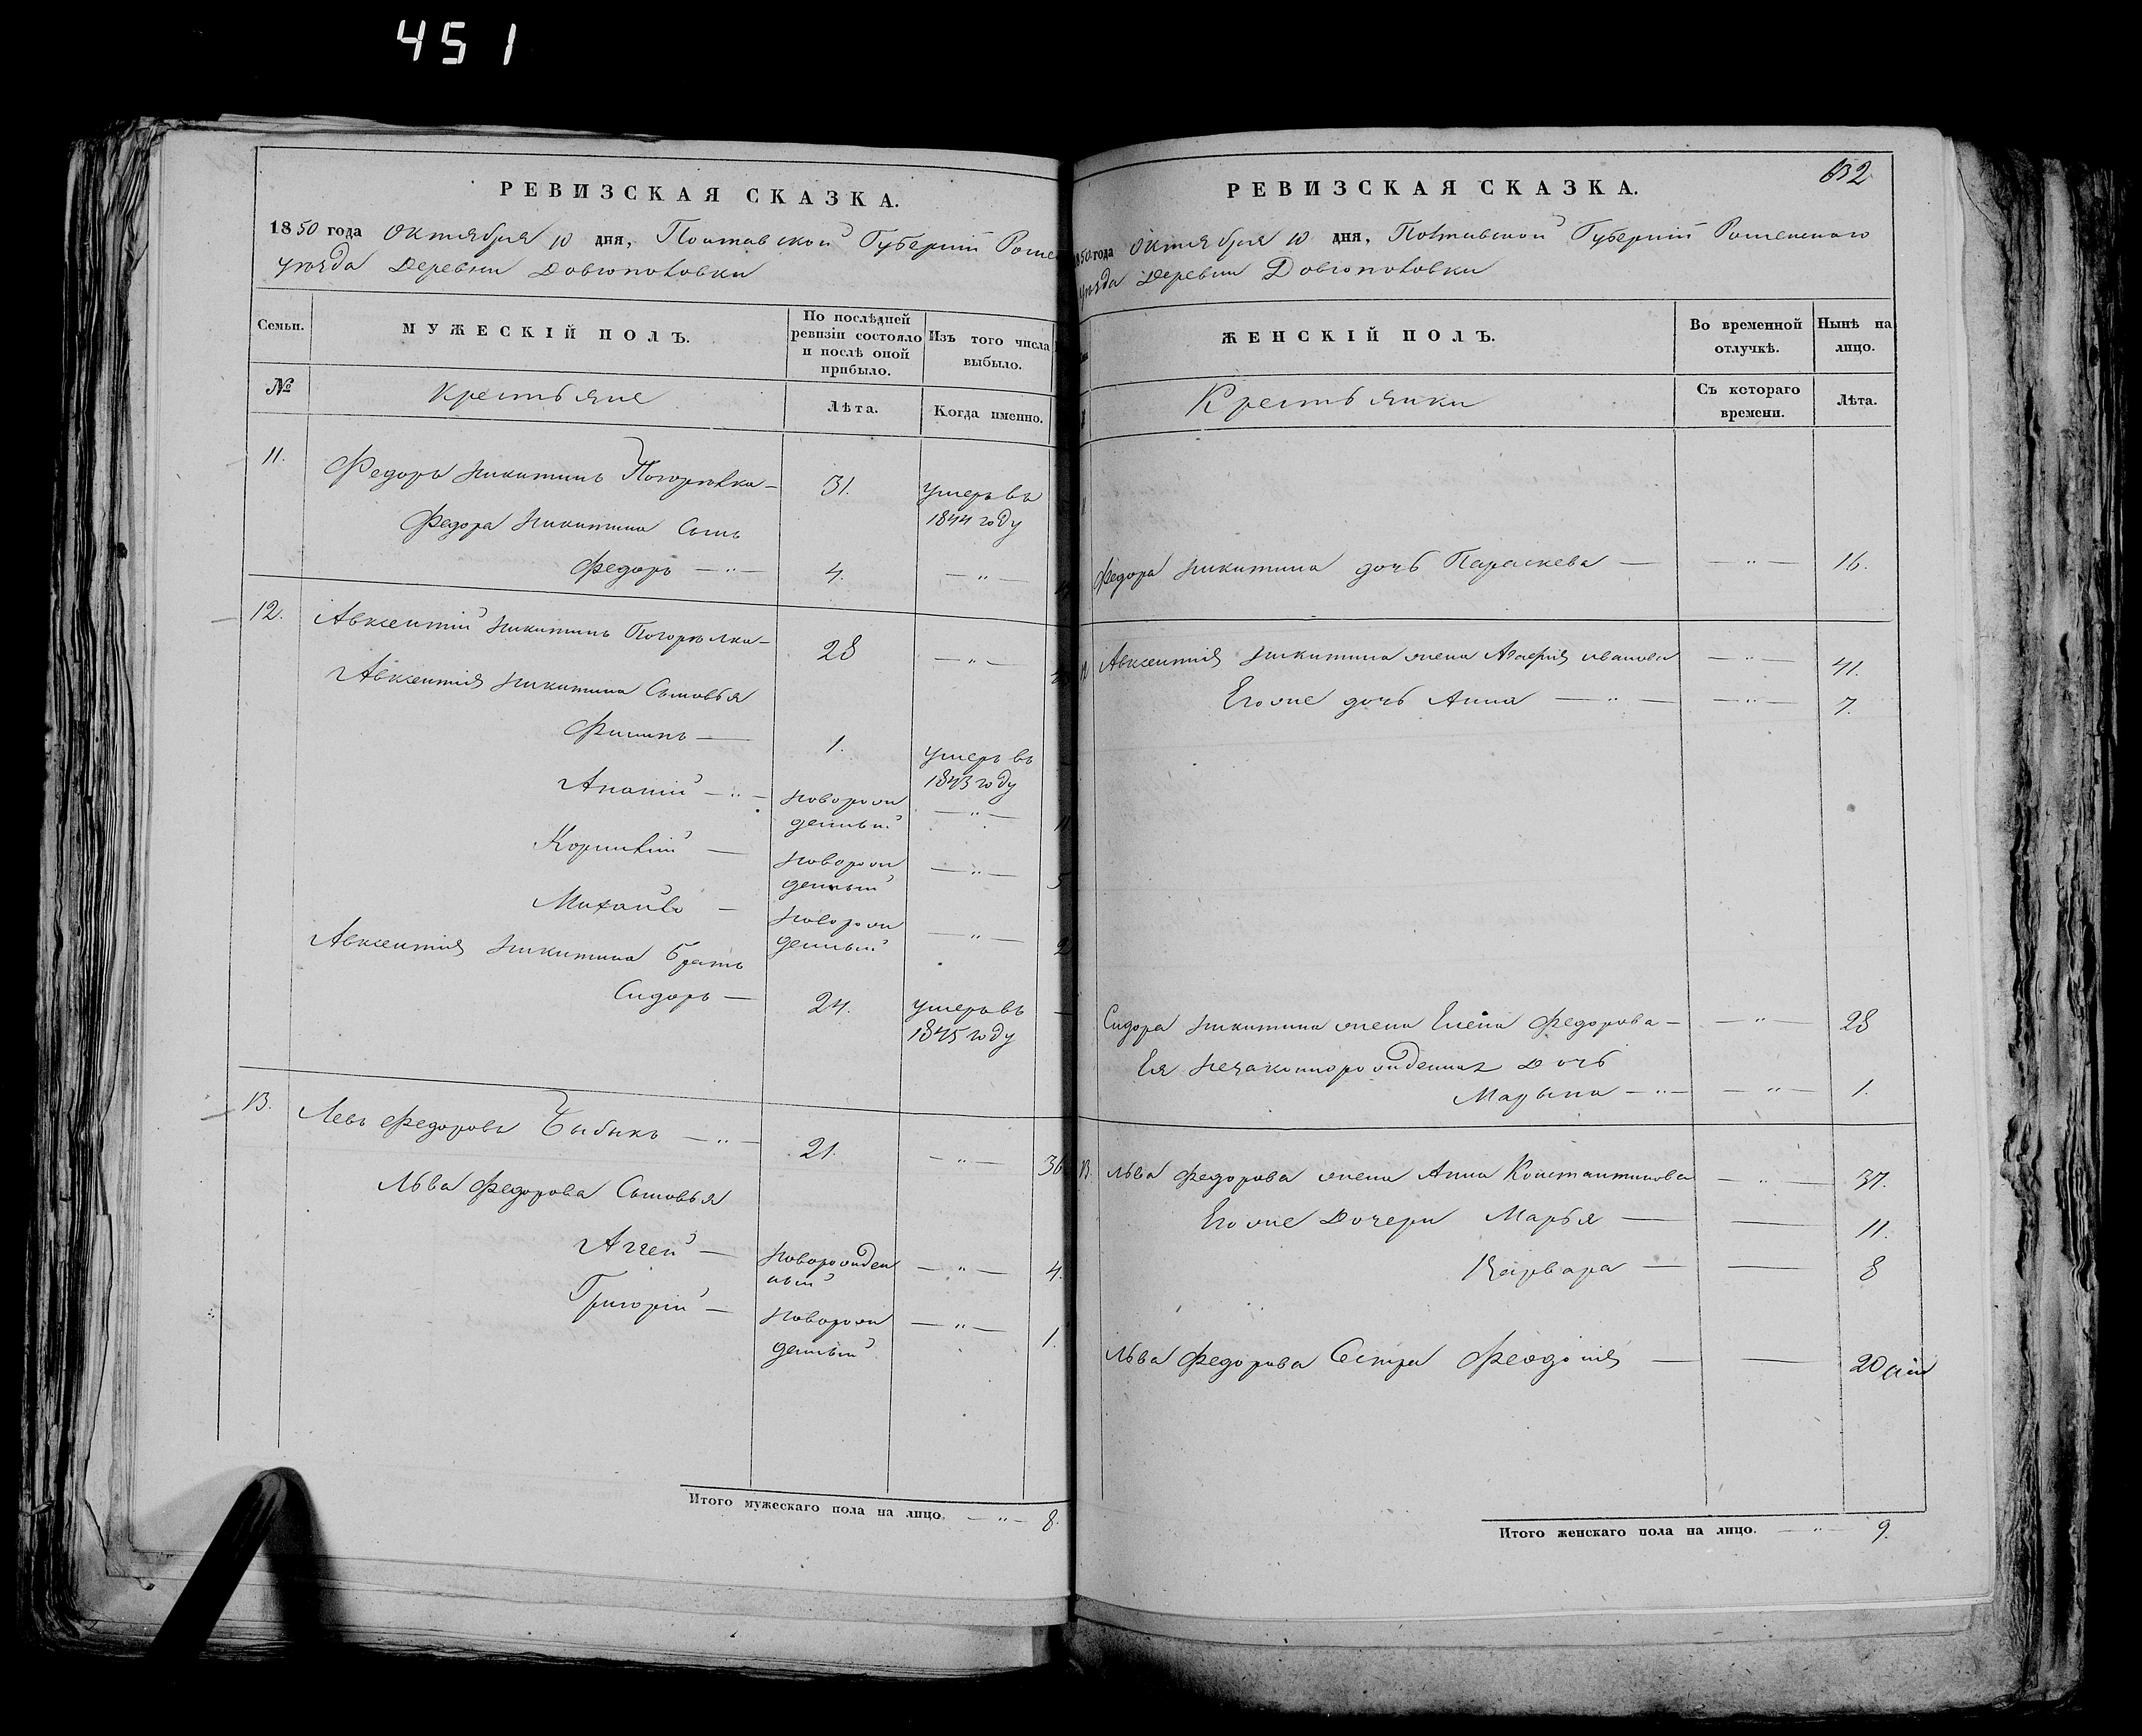 451
РЕВИЗСКАЯ СКАЗКА.
1850 года Октября 10 дня, Полтавской Губерніи Роме
уѣзда деревни Довгополовки
Семьи.
МУЖЕСКІЙ ПОЛЪ.
По послѣдней
ревизіи состояло
и послѣ оной
прибыло.
Изъ того числа
выбыло.
№
Крестьяне
Лѣта.
Когда именно.
11.
Федоръ Никитинъ Погорѣлко —
31.
умеръ въ
1844 году
Федора Никитина Сынъ
Федоръ — „ —
4.
— „ —
12.
Авксентій Никитинъ Погорѣлко —
28
— „ —
Авксентія Никитина Сыновья
Филипъ —
1.
умеръ въ
1843 году
Ананій — „ —
новорож
денный
— „ —
Корнилій —
новорож
денный
— „ —
5
Михайло —
новорож
денный
— „ —
2
Авксентія Никитина братъ
Сидоръ —
24.
умеръ въ
1845 году
—
13.
Левъ Федоровъ Чыбыкъ — „ —
21.
— „ —
36
Льва Федорова Сыновья
Аггей —
новорожден
ный
— „ —
4.
Григорій —
новорож
денный
— „ —
1.
Итого мужескаго пола на лицо. — „ — 8.
632
РЕВИЗСКАЯ СКАЗКА.
1850 года Октября 10 дня, Полтавской Губерніи Роменского
уѣзда деревни Довгополовки
ЖЕНСКІЙ ПОЛЪ.
Во временной
отлучкѣ.
Нынѣ на
лицо.
Крестьянки
Съ котораго
времени.
Лѣта.
Федора Никитина дочь Параскева —
— „ —
16.
12
Авксентія Никитина жена Агафія Иванова
— „ —
41.
Егоже дочь Анна — „ —
— „ —
7.
Сидора Никитина жена Елена Федорова —
— „ —
28
Ея незаконнорожденная дочь
Марына — „ —
— „ —
1.
13.
Льва Федорова жена Анна Константинова
— „ —
37.
Егоже Дочери Марья —
—
11.
Варвара —
—
8
Льва Федорова Сестра Феодосія —
—
20
Итого женскаго пола на лицо. — „ — 9.